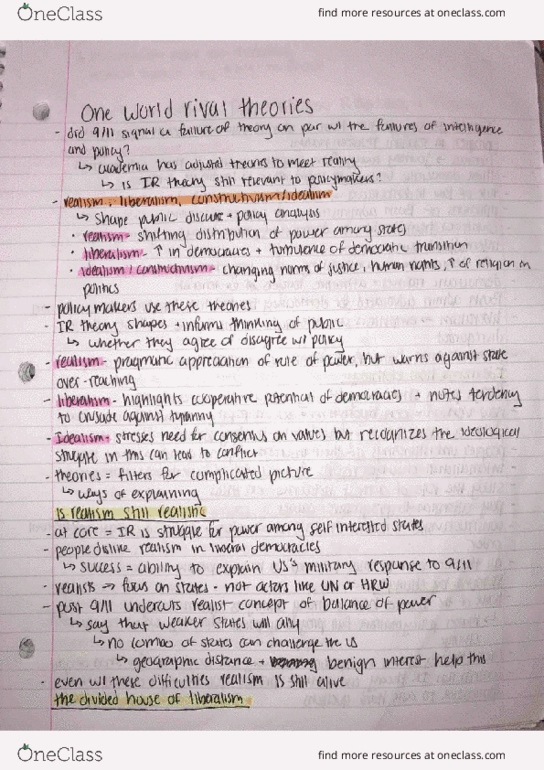 OneClass
find more resources at oneclass.com
One world rival theories
- did 9/11 signal a failure of theory on par w/ the failures of intelligence
and policy?
↳ academia has adjusted theories to meet reality
↳ is IR theory still relevant to policymakers?
- realism, liberalism, constructivism/idealism
↳ shape public discourse + policy analysis
• realism - shifting distribution of power among states
• liberalism - ↑ in democracies + turbulence of democratic transition
• idealism/constructivism - changing norms of justice, human rights, ↑ of religion on
politics
- policy makers use these theories
- IR theory shapes + informs thinking of public
↳ whether they agree or disagree w/ policy
- realism - pragmatic appreciation of role of power, but warns against state
over-reaching
- liberalism - highlights cooperative potential of democracies + notes tendency
to crusade against tyranny
- Idealism - stresses need for consensus on values but recognizes the ideological
struggle in this can lead to conflict
- theories = filters for complicated picture
↳ ways of explaining
is realism still realistic
- at core = IR is struggle for power among self interested states
- people dislike realism in liberal democracies
↳ success = ability to explain US's military response to 9/11
- realists → focus on states - not actors like UN or HRW
- post 9/11 undercuts realist concept of balance of power
↳ say that weaker states will ally
↳ no combo of states can challenge the US
↳ geographic distance + benign interest help this
- even w/ these difficulties realism is still alive
the divided house of liberalism
OneClass
find more resources at oneclass.com